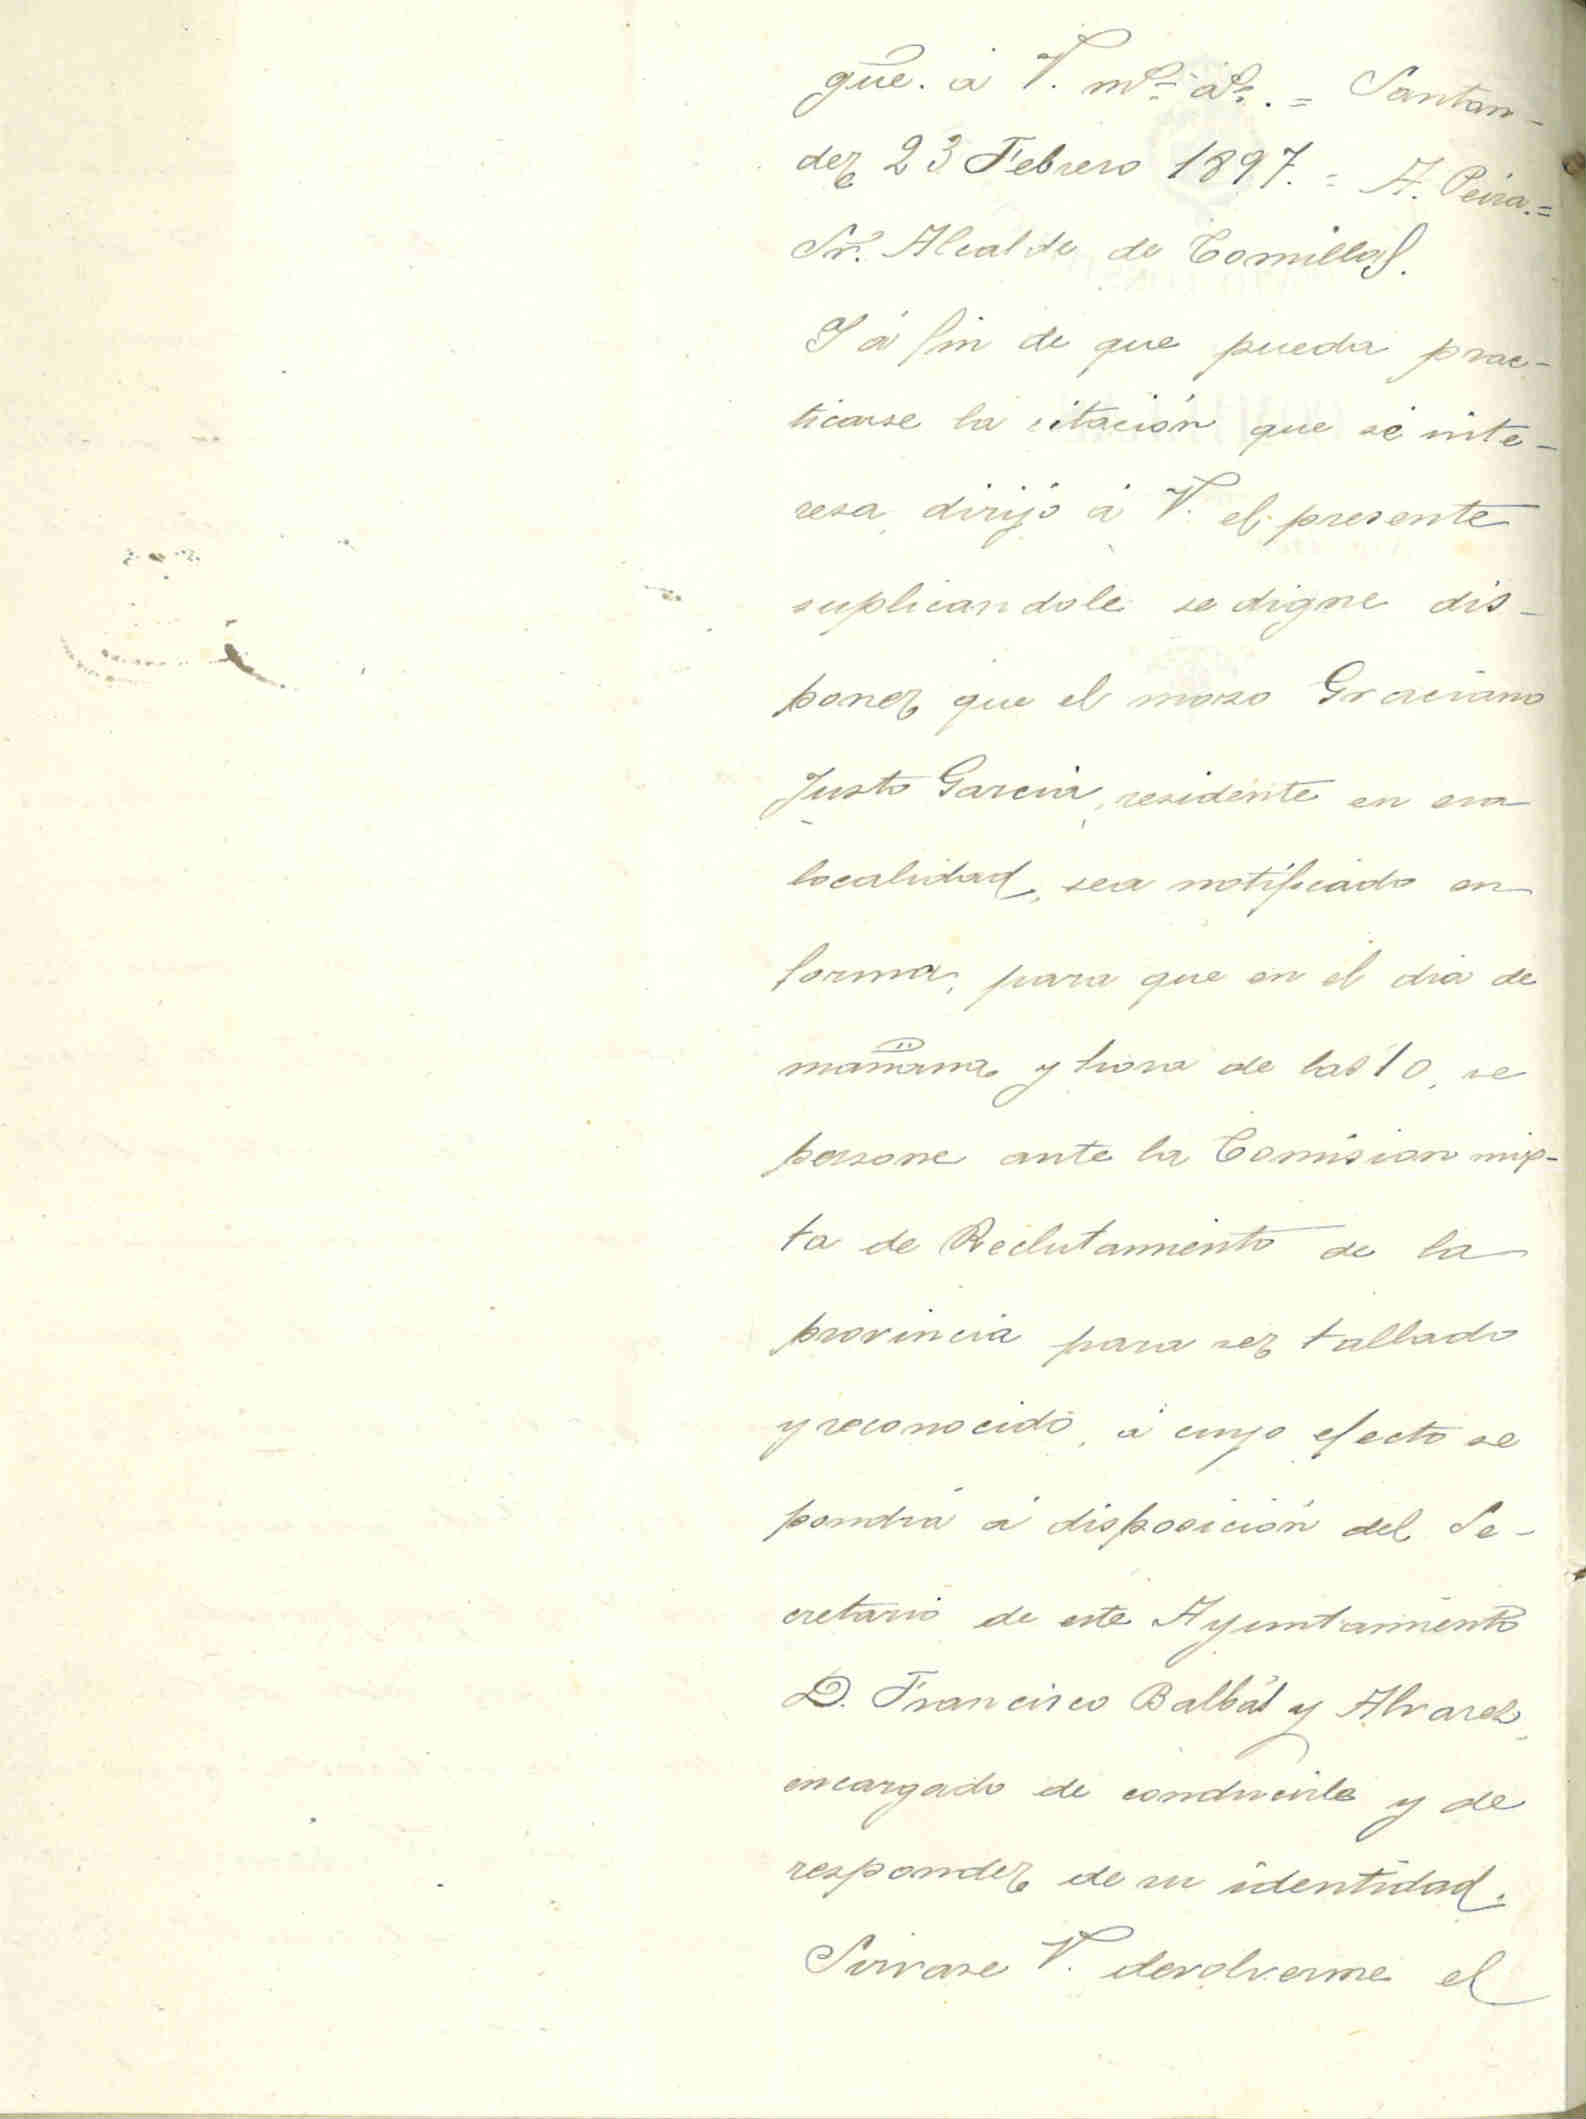 gue. á V. m.s a.s. = Santan-
der 23 Febrero 1897. = A. Peira. =
Sr. Alcalde de Comillas.
Y á fin de que pueda prac-
ticarse la citación que se inte-
resa, dirijo á V. el presente
suplicandole se digne dis-
poner que el mozo Graciano
Justo Garcia, residente en esa
localidad, sea notificado en
forma, para que en el dia de
mañana y hora de las 10, se
persone ante la Comision mix-
ta de Reclutamiento de la
provincia para ser tallado
y reconocido, á cuyo efecto se
pondrá á disposición del Se-
cretario de este Ayuntamiento
D. Francisco Balbás y Alvarez,
encargado de conducirle y de
responder de su identidad.
Sirvase V. devolverme el